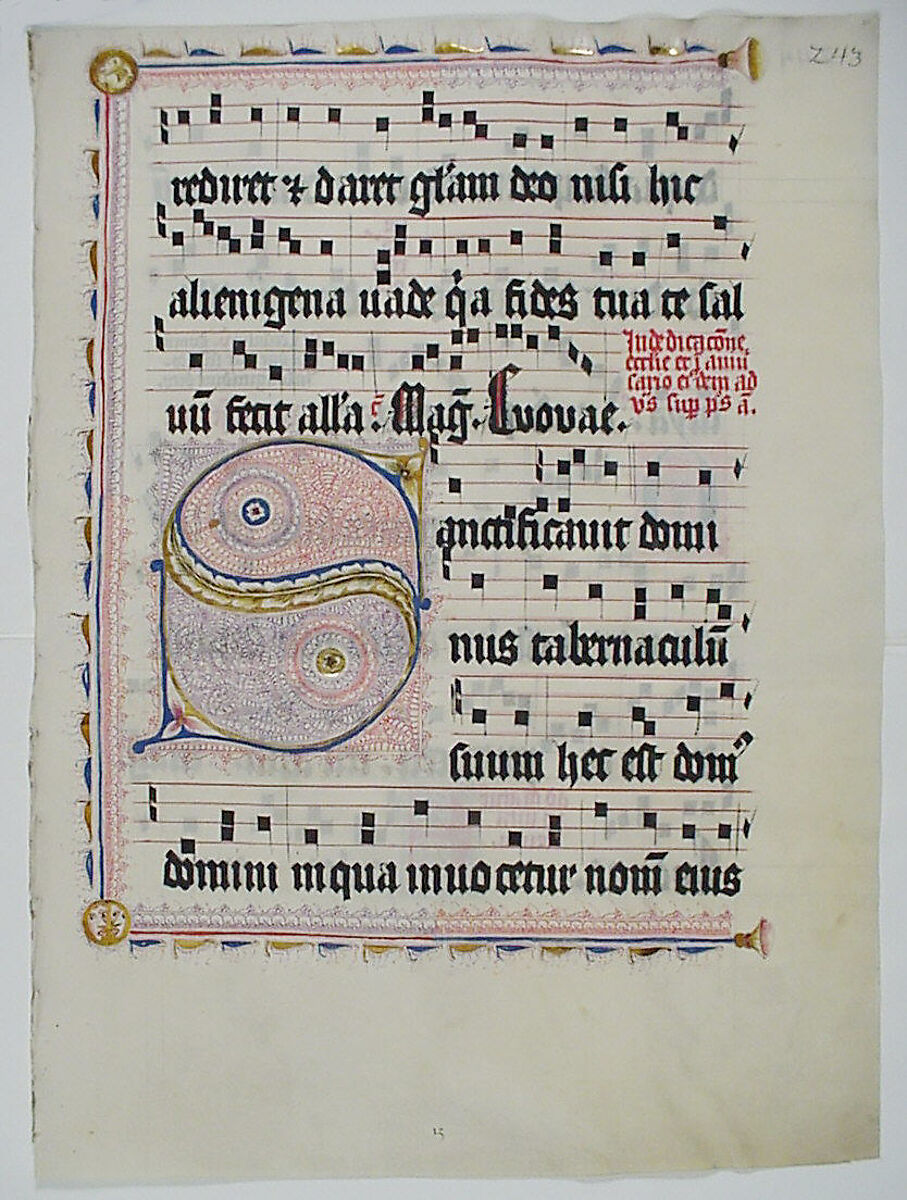 243
rediret & daret gl'am deo nisi hic
alienigena uade q'a fides tua te sal
uū fecit all'a. Mag̃. Euouae.
In dedicacōne
eccl'ie et ī anni
sario eiꝰdem ad
v̄s sup̱ p̄s ā.
Sanctificauit domi
nus tabernaculū
suum hec est domꝰ
domini in qua inuocetur nom̄ eius
15